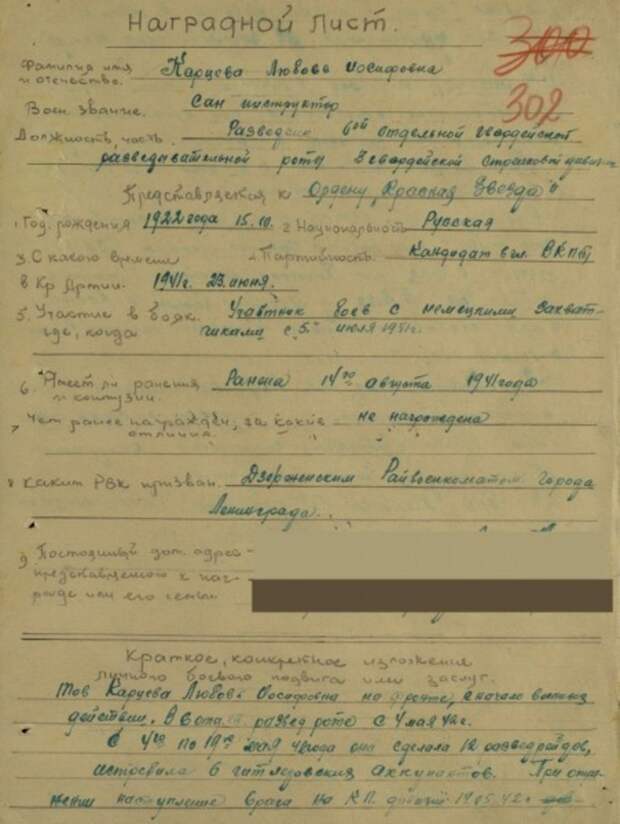 Наградной Лист.
300
302
Фамилия имя
и отчество. Карцева Любовь Иосифовна
Воен. звание. Сан инструктор
Должность, часть. Разведчик 6ой отдельной гвардейской
разведавательной роты 3 гвардейской стрелковой
Представляется к Ордену „Красная Звезда"
1. Год. рождения 1922 года 15.10. 2. Национальность Русская
3. С какого времени 4. Партийность. Кандидат в чл. ВКПб
в Кр Армии. 1941г. 23. июня.
5. Участие в боях. Участник боев с немецкими захват-
где, когда чиками с 5 июля 1941г.
6. Имеет ли ранения Ранена 14го августа 1941 года
и контузии.
7. Чем ранее награжден, за какие не награждена
отличия.
8 Каким РВК призван. Дзержинским Райвоенкоматом города
Ленинграда.
9. Постоянный дом. адрес
представляемого к наг-
раде или его семьи
Краткое, конкретное изложение
личного боевого подвига или заслуг.
Тов Карцева Любовь Иосифовна на фронте, с начало военных
действий. В развед роте с 4 мая 42г.
С 4го по 19го мая 42 года она сделала 12 разведрейдов,
истребила 6 гитлеровских оккупантов. При отра-
жении наступление врага на К.П. дивизии 19.05.42г.